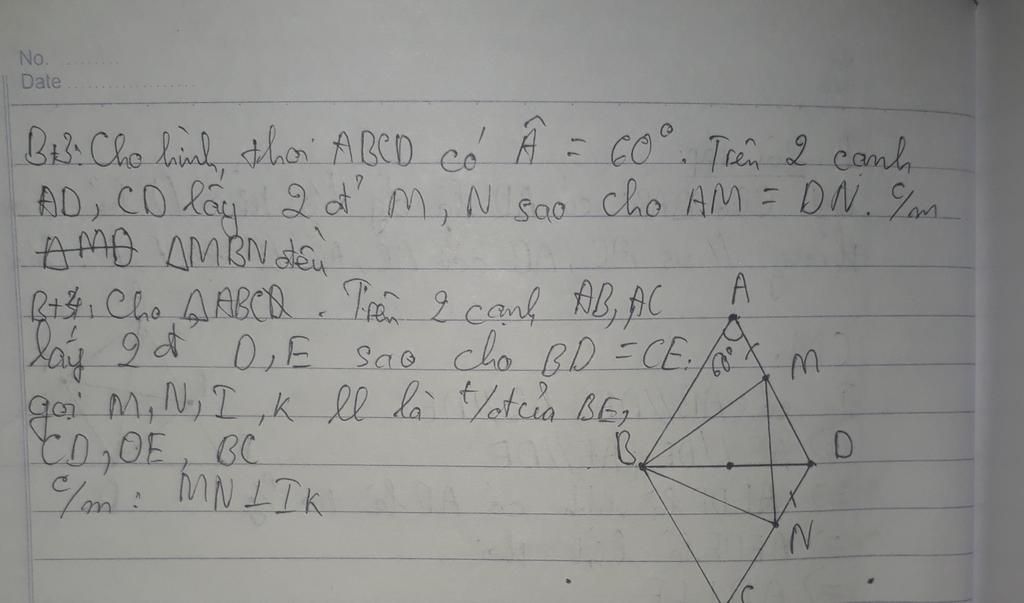 No.
Date
Bt3: Cho hình thoi ABCD có Â = 60°. Trên 2 cạnh
AD, CD lấy 2 đ' M, N sao cho AM = DN. c/m
ΔMBN đều
Bt4: Cho ΔABC. Trên 2 cạnh AB, AC
lấy 2 đ' D, E sao cho BD = CE.
gọi M, N, I, K ll là t/đ của BE,
CD, DE, BC
c/m: MN ⊥ IK
A
60°
M
B
D
N
C